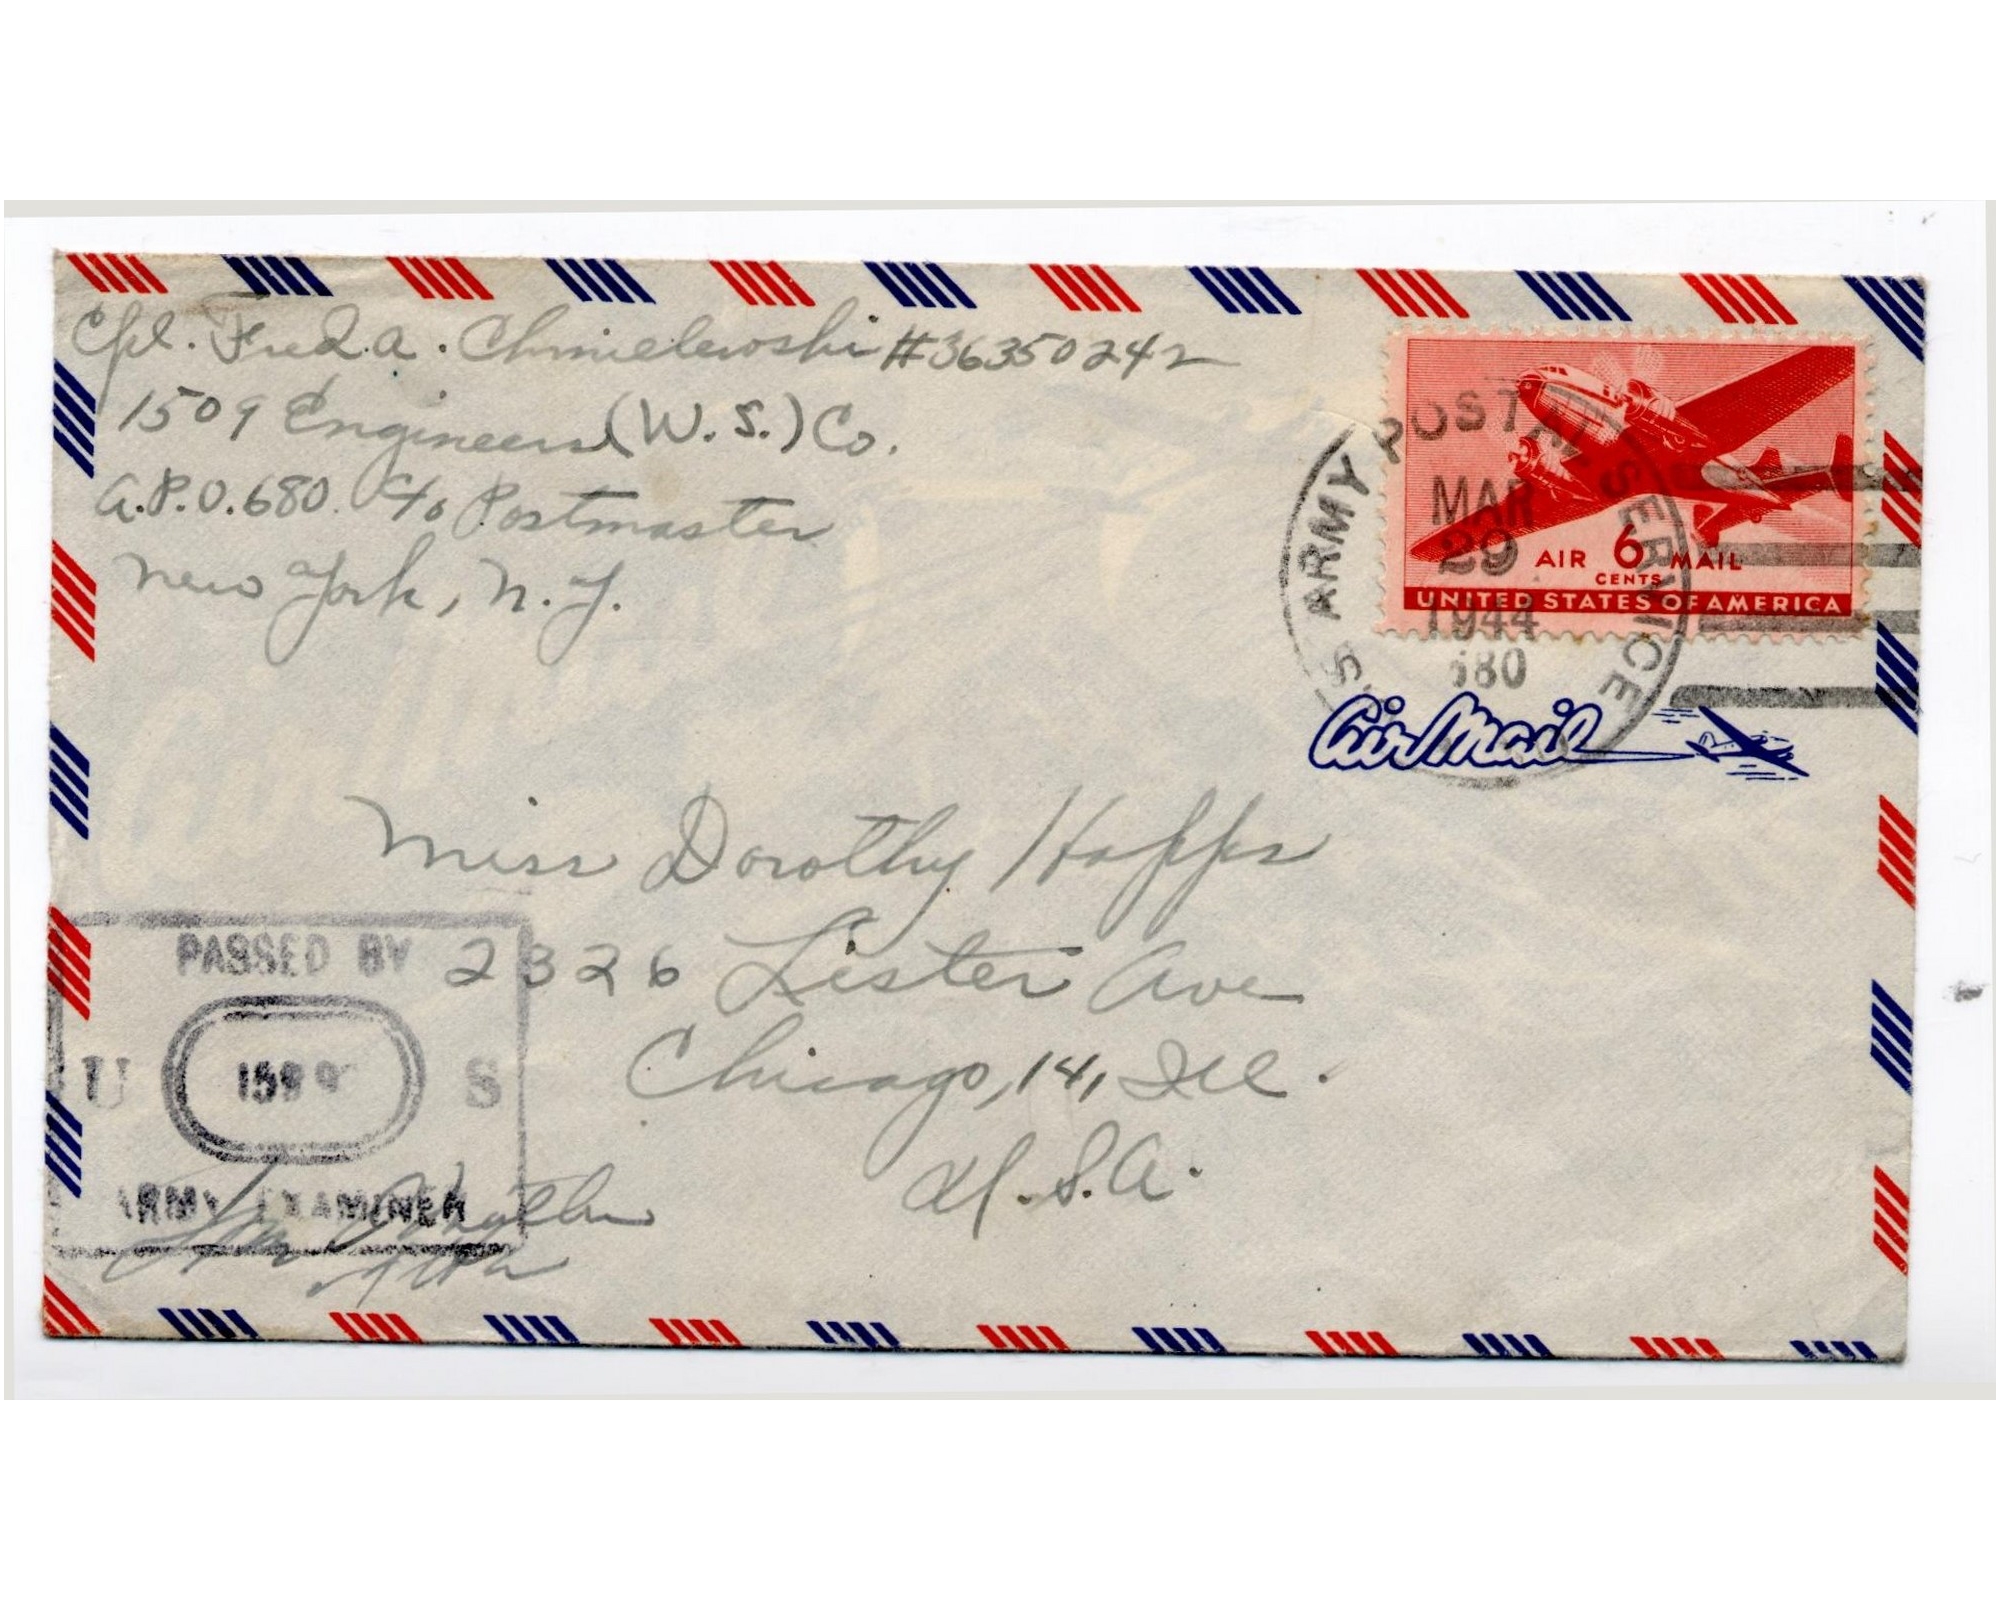 Cpl. Fred. A. Chmielewski #36350242
1509 Engineers (W.S.) Co.
A.P.O. 680. c/o Postmaster
New York, N.Y.
ARMY POSTAL SERVICE
MAR
29
1944
680
AIR 6 MAIL
CENTS
UNITED STATES OF AMERICA
Air Mail
Miss Dorothy Happs
2326 Lister Ave
Chicago, 14, Ill.
U.S.A.
PASSED BY
U S
ARMY EXAMINER